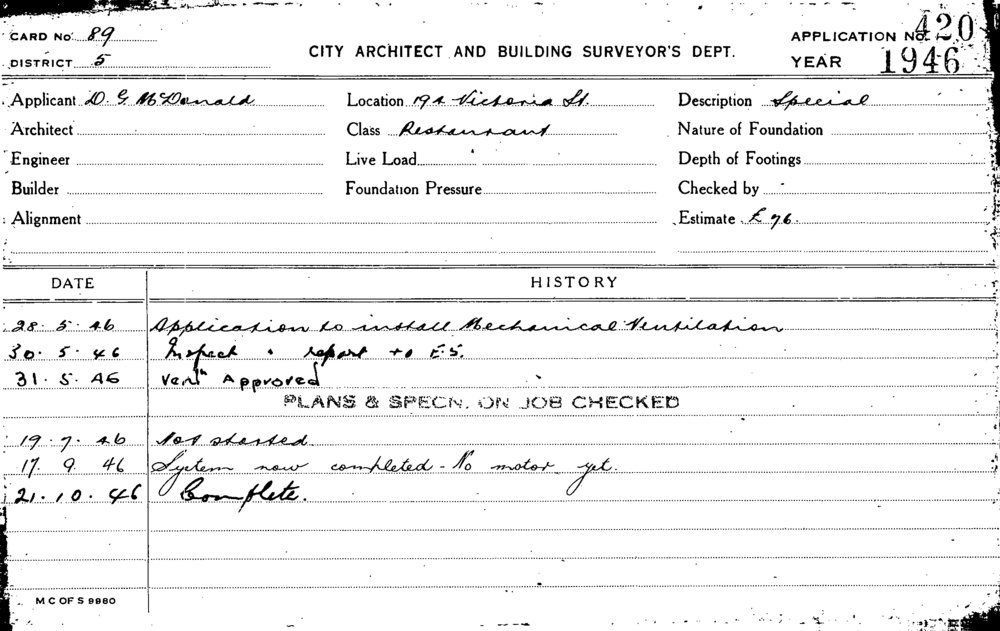 CARD No. 89
DISTRICT 5
CITY ARCHITECT AND BUILDING SURVEYOR'S DEPT.
APPLICATION No. 420
YEAR 1946
Applicant D. G. McDonald Location 192 Victoria St. Description Special
Architect Class Restaurant Nature of Foundation
Engineer Live Load Depth of Footings
Builder Foundation Pressure Checked by
Alignment Estimate £96.
DATE HISTORY
28. 5. 46 Application to install Mechanical Ventilation
30. 5. 46 Inspect & report to E.S.
31. 5. 46 Ventn Approved
PLANS & SPECN. ON JOB CHECKED
19. 7. 46 Not started.
17. 9. 46 System now completed - No motor yet.
21. 10. 46 Complete.
M C OF S 9980